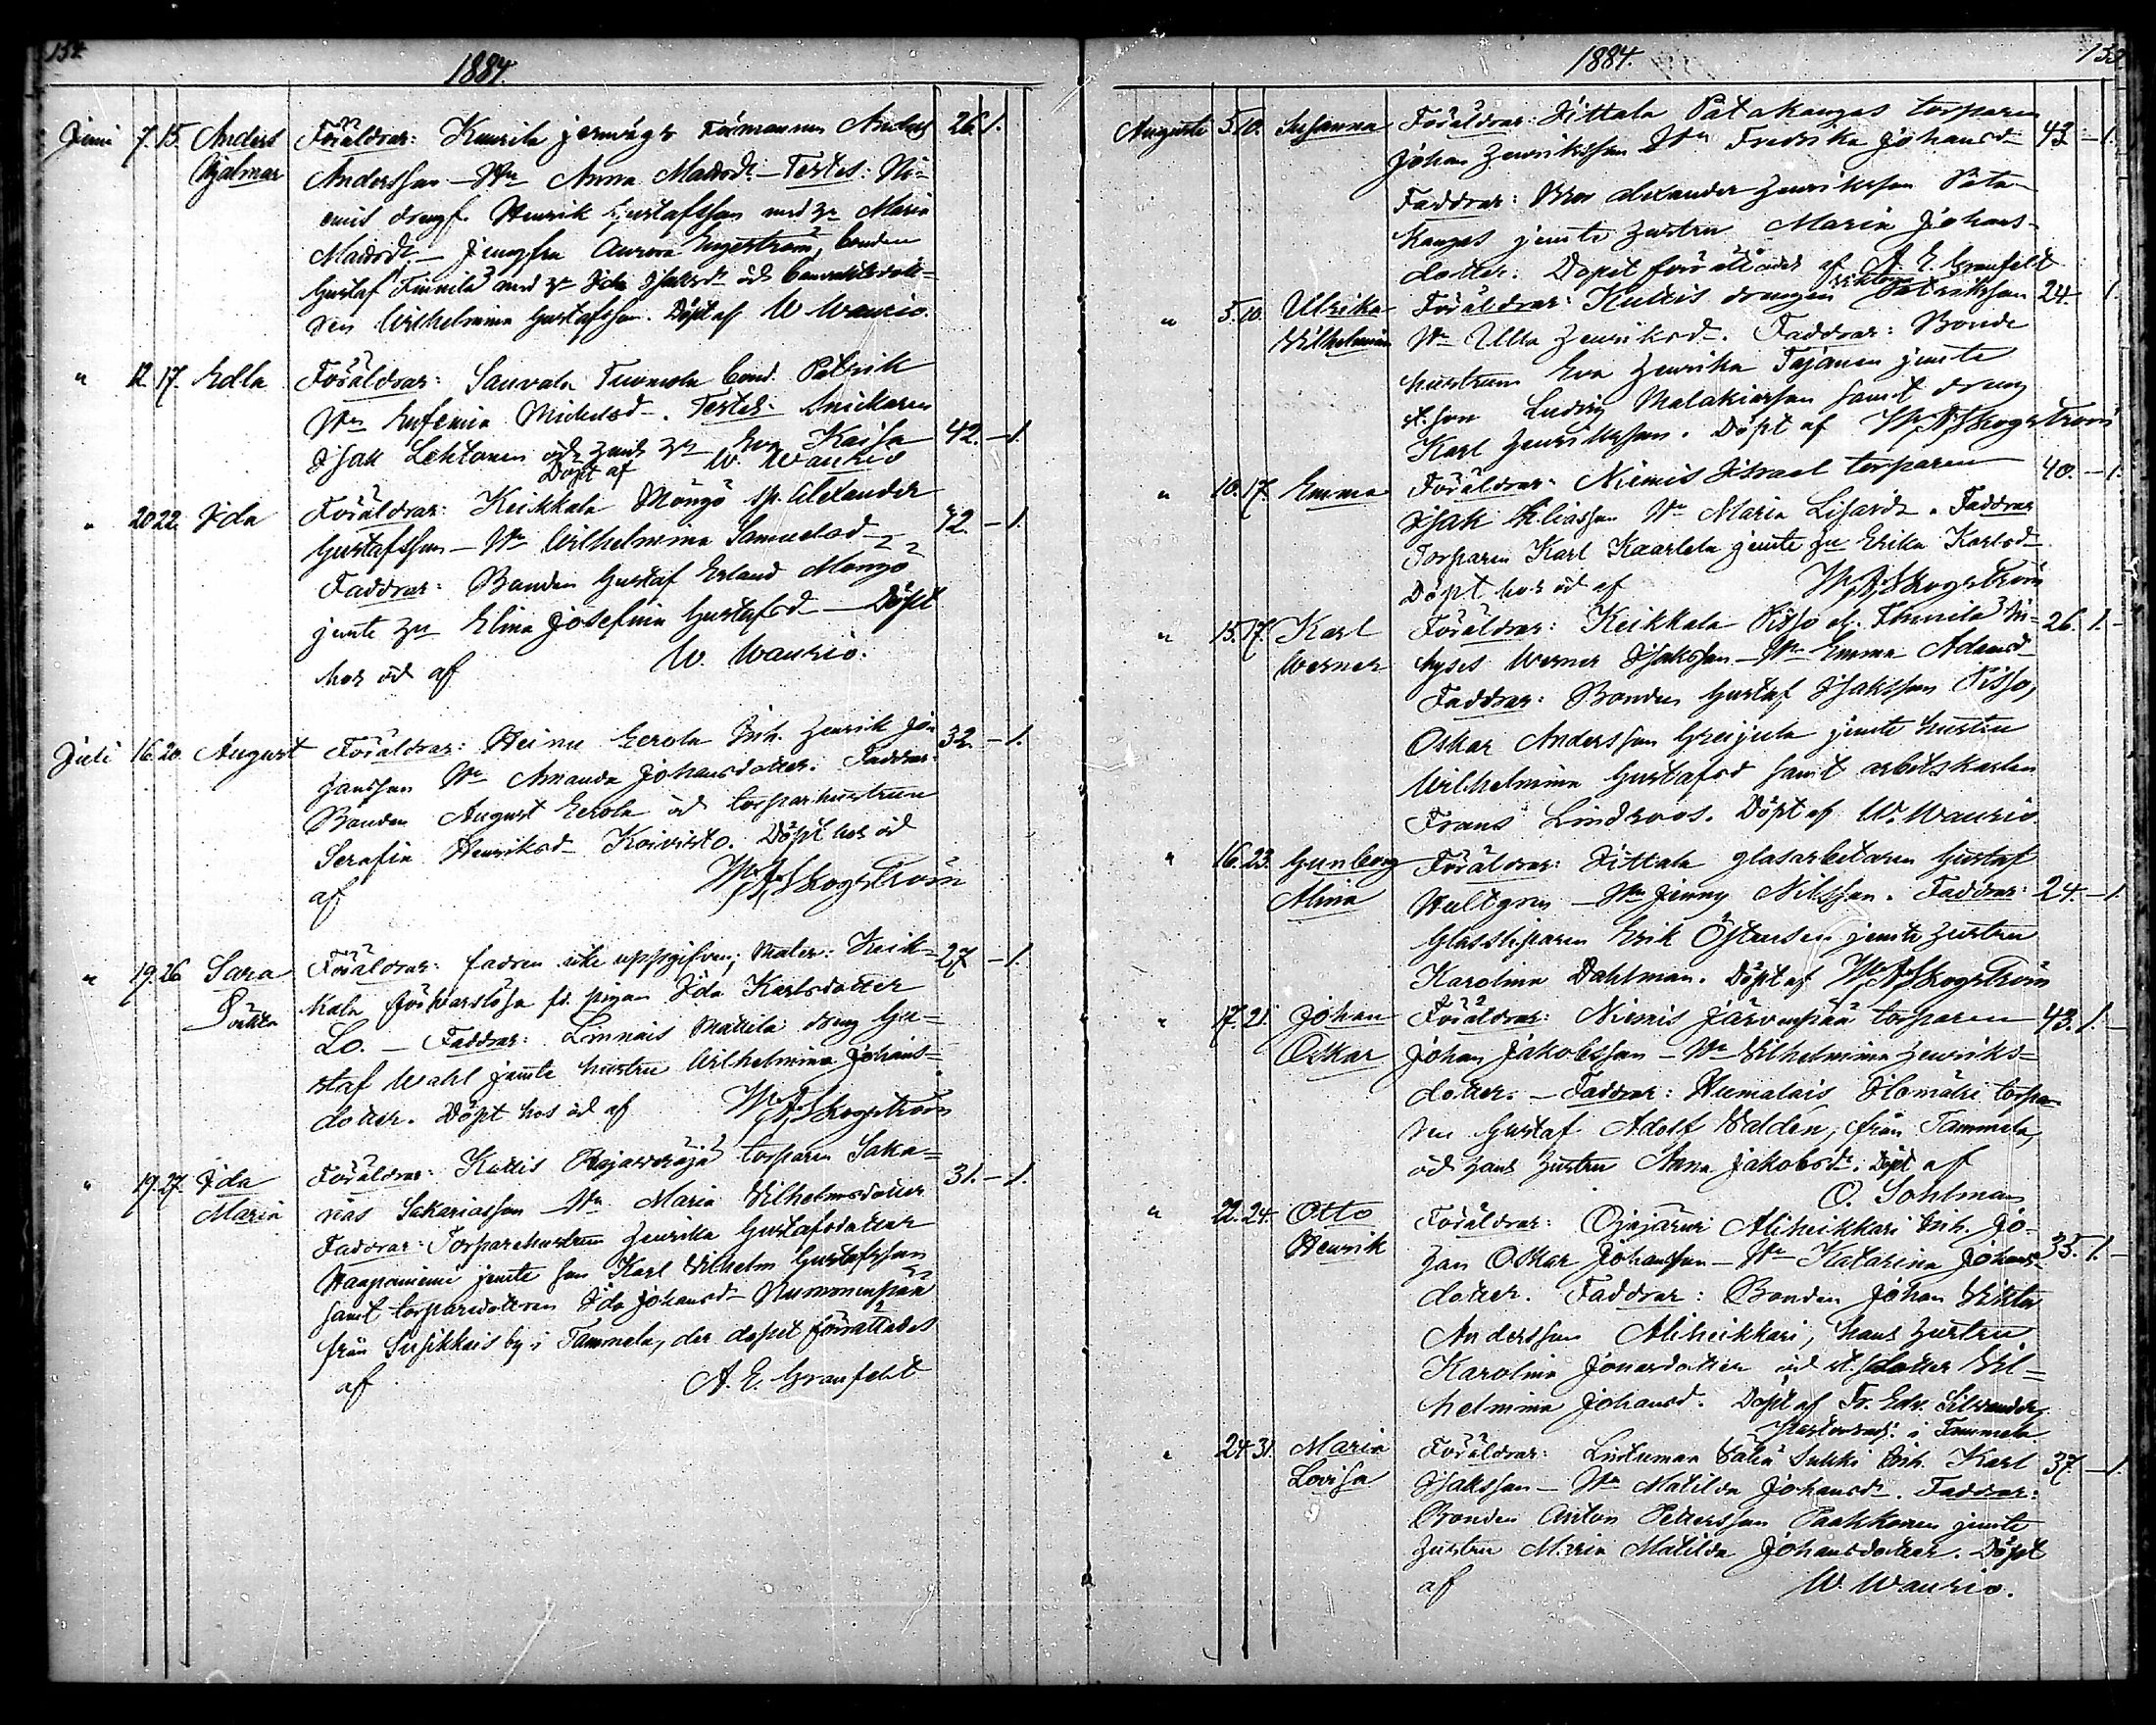 132
1884.
Juni 7. 15. Anders Föräldrar: Kaurila jernvägs Förmannen Anders 26. 1.
Hjalmar Andersson – Hu Anna Madsdr – Testes: Ni-
emis drengf. Henrik Gustafsson med hu Maria
Madsdr – Jungfru Aurora Engeström, bonden
Gustaf Finnilä med hu Ida Isaksdr och
ren Wilhelmina Gustafsson. Döpt af W. Waurio.
" 12. 17. Edla Föräldrar: Sauvala Tuomola bond. Patrik
Hu Eufemia Michelsd. Testes: Snickaren
Isak Lehtonen och hans hu Eva Kaisa 42. – 1.
Döpt af W. Waurio
" 20 22. Ida Föräldrar: Keikkala Möngö Alexander
Gustafsson – Hu Wilhelmina Samuelsd 42. – 1.
Faddrar: Bonden Gustaf Erland Möngö
jemte hu Elina Josefina Gustafsd – Döpt
hos öd af W. Waurio.
Juli 16. 20. August Föräldrar: Heinu Eerola Inh. Henrik Jo- 32. – 1.
hansson Hu Amanda Johansdotter. Faddrar:
Bonden August Eerola öd torparhustrun
Serafia Henriksd Koivisto. Döpt hos öd
af W. J. Skogström
" 19. 26 Sara Föräldrar: fadren icke uppgifven; Mater: Keik- 27 – 1.
kala försvarslösa fd. pigan Ida Karlsdotter
Lo. – Faddrar: Linnais Mattila dreng Gu-
staf Wahl jemte hustru Wilhelmina Johans-
dotter. Döpt hos öd af W. J. Skogström
" 19. 27. Ida Föräldrar: Kuttis torparen Saka- 31. – 1.
Maria rias Sakariasson Hu Maria Vilhelmsdotter
Faddrar: Torparehustrun Henrika Gustafsdotter
Haapaniemi jemte son Karl Vilhelm Gustafsson
samt torparedottren Ida Johansd Nummenpää
från Susikkais by i Tammela, der dopet förrättades
af A. E. Granfelt
1884.
133
Augusti 5. 10. Susanna Föräldrar: Iittala Patakangas torparen
Johan Henriksson Hu Fredrika Johansd 43 – 1.
Faddrar: Bror Alexander Henriksson Pata-
kangas jemte hustru Maria Johans-
dotter. Dopet förrättades af A. E. Granfelt
" 5. 10. Ulrika Föräldrar: Kuttis drengen Viktor Patriksson 24. 1.
Vilhelmina Hu Ulla Henriksd. Faddrar: Bonde
hustrun Eva Henrika Tajanen jemte
st. son Ludvig Malakiasson samt dreng
Karl Henriksson. Döpt af W. J. Skogström
" 10. 17. Emma Föräldrar: Niemis Israel torparen 40. – 1.
Isak Eliasson Hu Maria Lisa . Faddrar
Torparen Karl Kaarlela jemte hu Erika Karlsd
Döpt hos öd af W. J. Skogström
" 15. 17. Karl Föräldrar: Keikkala Pisso el. Finnilä In- 26. 1. –
Werner hyses Werner Isaksson – Hu Emma Adamsd
Faddrar: Bonden Gustaf Isaksson Pisso,
Oskar Andersson Greijula jemte hustru
Wilhelmina Gustafsd samt arbetskarlen
Frans Lindroos. Döpt af W. Waurio.
" 16. 23. Gunborg Föräldrar: Iittala glasarbetaren Gustaf
Alina Hultgren – Hu Jenny Nilsson. Faddrar: 24. – 1.
Glassliparen Erik Östensen jemte hustru
Karolina Dahlman. Döpt af W. J. Skogström
" 17. 21. Johan Föräldrar: Niemis Järvenpää torparen 43. 1. –
Oskar Johan Jakobsson – Hu Vilhelmina Henriks-
dotter. – Faddrar: Humalais Ilomäki torpa-
ren Gustaf Adolf Valdén, från Tammela,
öd hans hustru Anna Jakobsdr. Döpt af
O. Sohlman
" 22. 24. Otto Föräldrar: Ojajärvi Aliheikkari Inh. Jo-
Henrik han Oskar Johansson – Hu Katarina Johans- 35. 1. –
dotter. Faddrar: Bonden Johan Viktor
Andersson Aliheikkari, hans hustru
Karolina Jonasdotter öd st. dotter Vil-
helmina Johansd. Döpt af Fr. Edv. Silvander,
i Tammela
" 24 31. Maria Föräldrar: Lintumaa Sukki Inh. Karl 37. – 1.
Lovisa Isaksson – Hu Matilda Johansdr. Faddrar:
Bonden Anton Pettersson Paakkonen jemte
hustru Maria Matilda Johansdotter. Döpt
af W. Waurio.